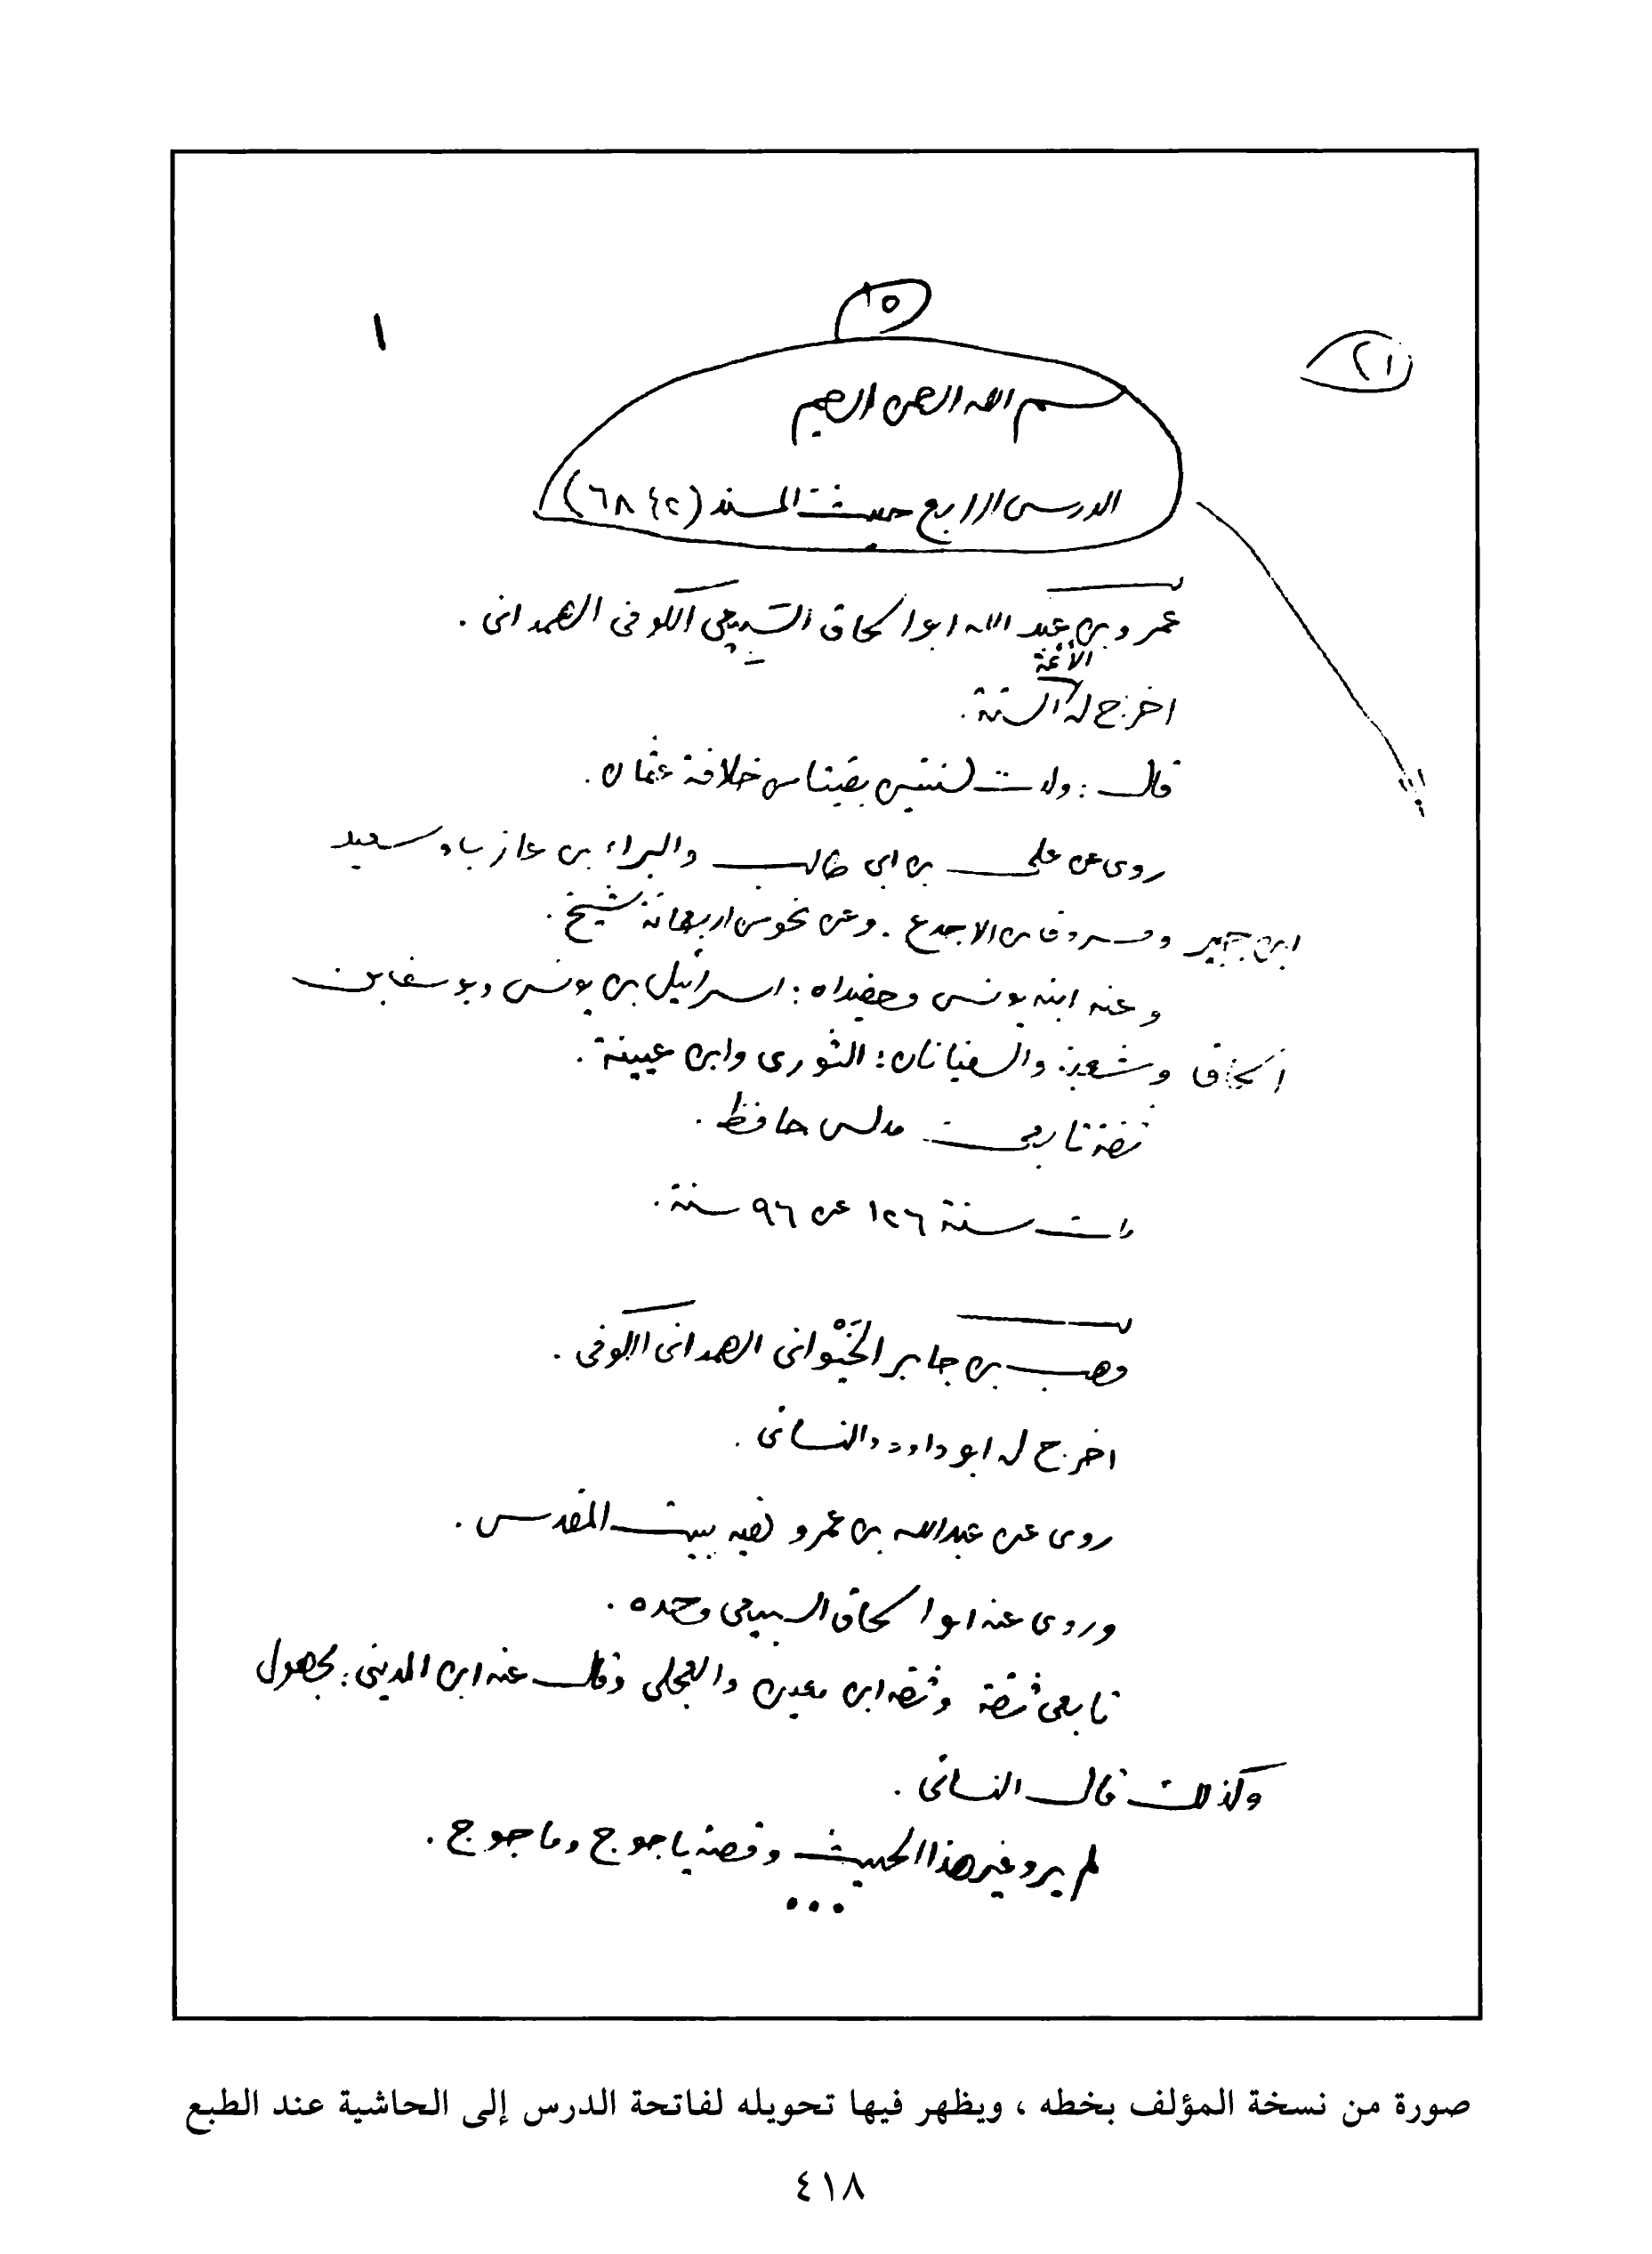 ١
٢١
١٥
بسم الله الرحمن الرحيم
الدرس الرابع حديث المسند (٦٨٤٢)
عمرو بن عبد الله ابو اسحاق السَّبِيعي الكوفي الهمداني .
الأئمة
اخرج له الستة .
قال : ولدت لسنتين بقيتا من خلافة عثمان .
روى عن علي بن ابي طالب والبراء بن عازب وسعيد
ابن جبير ومسروق بن الاجدع . وعن نحو من اربعمائة شيخ .
وعنه ابنه يونس وحفيداه : اسرائيل بن يونس ويوسف بن
اسحاق وشعبة والسفيانان : الثوري وابن عيينة .
ثقة تابعي مدلس حافظ .
مات سنة ١٢٦ عن ٩٦ سنة .
وهب بن جابر الخَيْواني الهمداني الكوفي .
اخرج له ابو داود والنسائي .
روى عن عبدالله بن عمرو لقيه ببيت المقدس .
وروى عنه ابو اسحاق السبيعي وحده .
تابعي ثقة وثقه ابن معين والعجلي وقال عنه ابن المديني : مجهول
وكذلك قال النسائي .
لم يرو غير هذا الحديث وقصة ياجوج وماجوج .
...
صورة من نسخة المؤلف بخطه ، ويظهر فيها تحويله لفاتحة الدرس إلى الحاشية عند الطبع
٤١٨